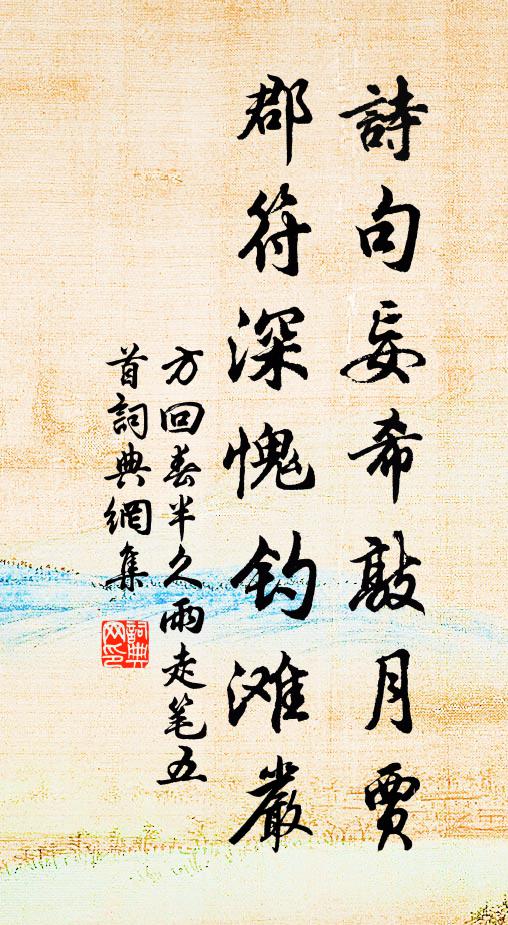 詩句妄希敲月賈
郡符深愧钓滩嚴
方回春半久雨走笔五
首詞典網集
詞典
网印